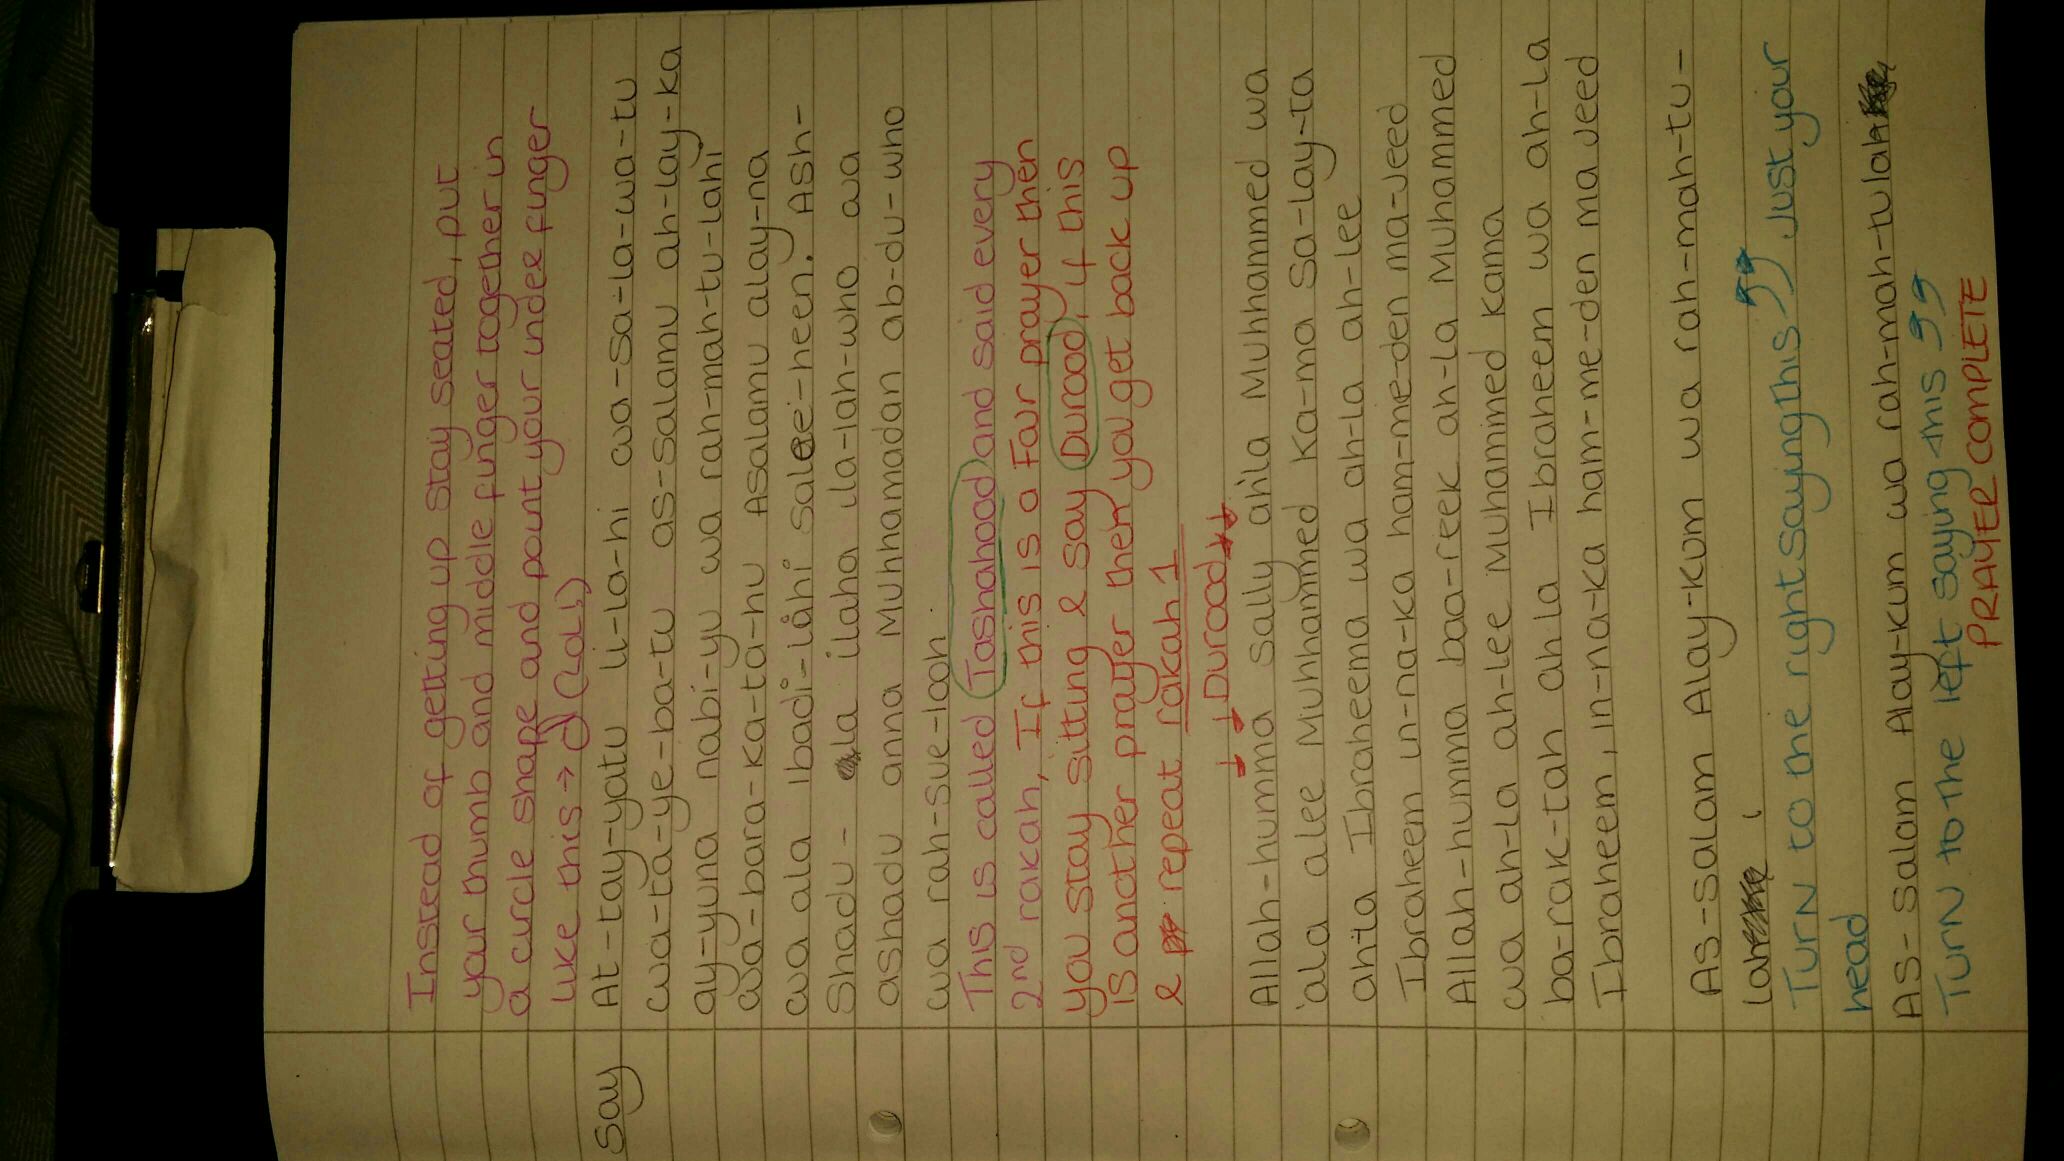 Instead of getting up stay seated, put
your thumb and middle finger together in
a circle shape and point your index finger
like this → (LOL!)
Say At-tay-yatu li-la-hi wa-sa-la-wa-tu
wa-ta-ye-ba-tu as-salamu ah-lay-ka
ay-yuna nabi-yu wa rah-mah-tu-lahi
wa-bara-ka-ta-hu Asalamu alay-na
wa ala ibadi-lahi salee-heen. Ash-
Shadu- la ilaha ila-lah-who wa
ashadu anna Muhhamadan ab-du-who
wa rah-sue-looh
This is called Tashahood and said every
2nd rakah, If this is a Far prayer then
you stay sitting & say Durood, if this
is another prayer then you get back up
& repeat rakah 1
↓ ↓ ↓ Durood ↓ ↓
Allah-humma sally ahla Muhhammed wa
'ala alee Muhhammed ka-ma sa-lay-ta
ahita Ibraheema wa ah-la ah-lee
Ibraheem in-na-ka ham-me-den ma-Jeed
Allah-humma baa-reek ah-la Muhammed
wa ah-la ah-lee Muhammed kama
ba-rak-tah ah la Ibraheem wa ah-la
Ibraheem, in-na-ka ham-me-den ma Jeed
As-salam Alay-kum wa rah-mah-tu-
lah
Turn to the right saying this ,, Just your
head
As-salam Alay-kum wa rah-mah-tulah
Turn to the left saying this ,,
PRAYER COMPLETE